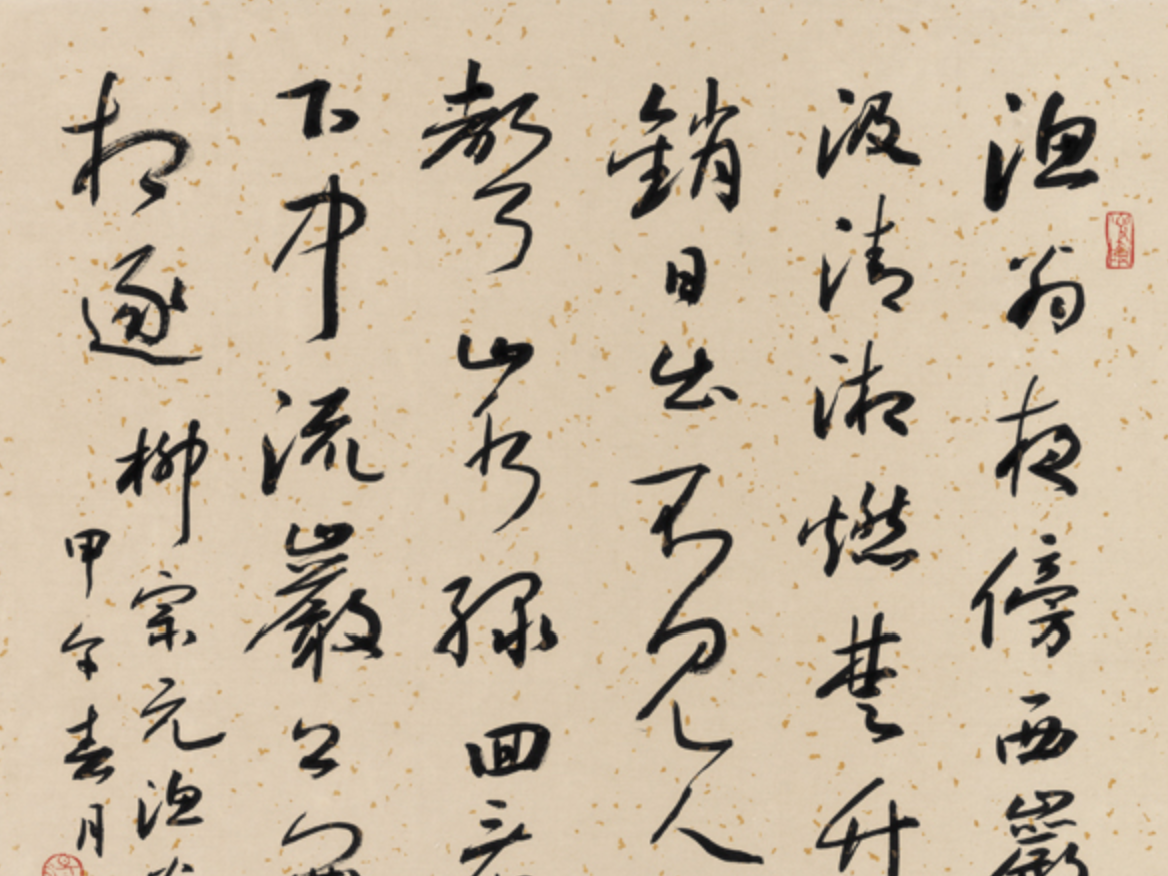 漁翁夜傍西巖
汲清湘燃楚竹
銷日出不見人
聲山水綠回
下中流巖上
相逐 柳宗元漁
甲午春月